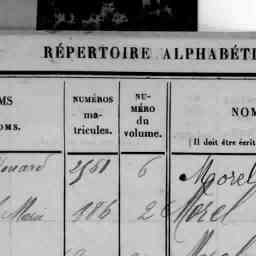 RÉPERTOIRE ALPHABÉTI
MS
OMS.
NUMÉROS
ma-
tricules.
NU-
MÉRO
du
volume.
NOM
(Il doit être écrit
2561 6 Morel
Marie 186 2 Morel